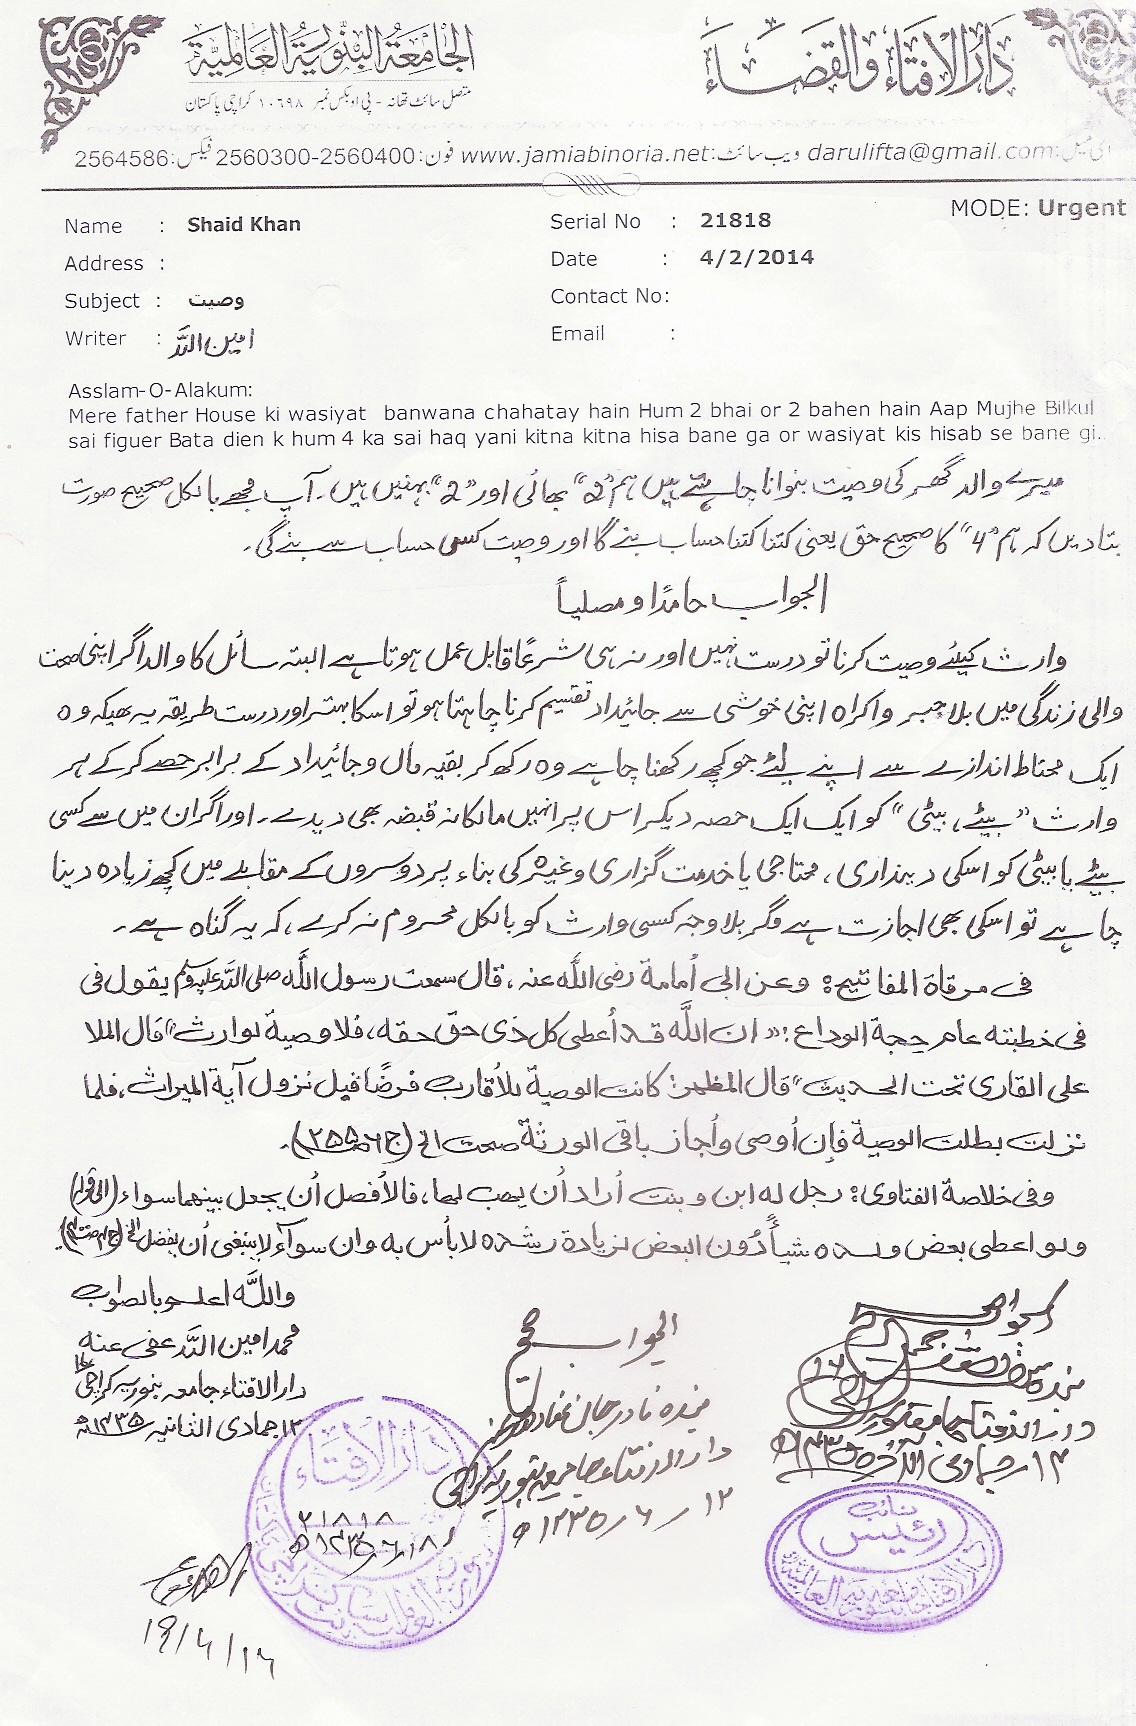 دار الافتاء والقضاء
الجامعة البنورية العالمية
متصل سائٹ تھانہ - پی او بکس نمبر ۱۰۶۹۸ کراچی پاکستان
darulifta@gmail.com ویب سائٹ: www.jamiabinoria.net فون: 2560300-2560400 فیکس: 2564586
MODE: Urgent
Name : Shaid Khan
Serial No : 21818
Address :
Date : 4/2/2014
Subject : وصیت
Contact No:
Writer : امین اللہ
Email :
Asslam-O-Alakum:
Mere father House ki wasiyat banwana chahatay hain Hum 2 bhai or 2 bahen hain Aap Mujhe Bilkul
sai figuer Bata dien k hum 4 ka sai haq yani kitna kitna hisa bane ga or wasiyat kis hisab se bane gi..
میرے والد گھر کی وصیت بنوانا چاہتے ہیں ہم "2" بھائی اور "2" بہنیں ہیں۔ آپ مجھے بالکل صحیح صورت
بتادیں کہ ہم "4" کا صحیح حق یعنی کتنا کتنا حساب بنے گا اور وصیت کس حساب سے بنے گی۔
الجواب حامدًا ومصلیاً
وارث کیلئے وصیت کرنا تو درست نہیں اور نہ ہی شرعًا قابل عمل ہوتا ہے البتہ سائل کا والد اگر اپنی صحت
والی زندگی میں بلا جبر واکراہ اپنی خوشی سے جائیداد تقسیم کرنا چاہتا ہو تو اسکا بہتر اور درست طریقہ یہ ھیکہ وہ
ایک محتاط اندازے سے اپنے لئے جو کچھ رکھنا چاہے وہ رکھ کر بقیہ مال وجائیداد کے برابر حصے کرکے ہر
وارث "بیٹے، بیٹی" کو ایک ایک حصہ دیکر اس پر انہیں مالکانہ قبضہ بھی دیدے۔ اور اگر ان میں سے کسی
بیٹے یا بیٹی کو اسکی دینداری، محتاجی یا خدمت گزاری وغیرہ کی بناء پر دوسروں کے مقابلے میں کچھ زیادہ دینا
چاہے تو اسکی بھی اجازت ہے مگر بلاوجہ کسی وارث کو بالکل محروم نہ کرے، کہ یہ گناہ ہے۔
فی مرقاة المفاتیح: وعن أبی أمامة رضی اللّٰه عنه، قال سمعت رسول اللّٰه صلی اللّٰه علیہ وسلم یقول فی
فی خطبته عام حجة الوداع: "ان اللّٰه قد أعطی کل ذی حق حقه، فلا وصیة لوارث" قال الملا
علی القاری تحت الحدیث "قال المظهر: کانت الوصیة للأقارب فرضًا قبل نزول آیة المیراث، فلما
نزلت بطلت الوصیة فإن أوصی وأجاز باقی الورثة صحت الخ (ج۶ ص۲۵۵)۔
وفی خلاصة الفتاوی: رجل له ابن وبنت أراد أن یهب لهما، فالأفضل أن یجعل بینهما سواء (الی قوله)
ولو اعطی بعض ولده شیأ دُون البعض لزیادة رشده لا بأس به وان سواء لا ینبغی أن یفضل الخ
واللّٰه اعلم بالصواب
محمد امین اللّٰہ عفی عنہ
دار الافتاء جامعہ بنوریہ کراچی
۱۲ جمادی الثانیہ ۱۴۳۵ھ
الجواب صحیح
بندہ نادر جان
دار الافتاء جامعہ بنوریہ کراچی
۱۲/۶/۱۴۳۵ھ
الجواب
بندہ
دار الافتاء جامعہ بنوریہ
دار الافتاء
۲۱۸۱۸
نائب
رئیس